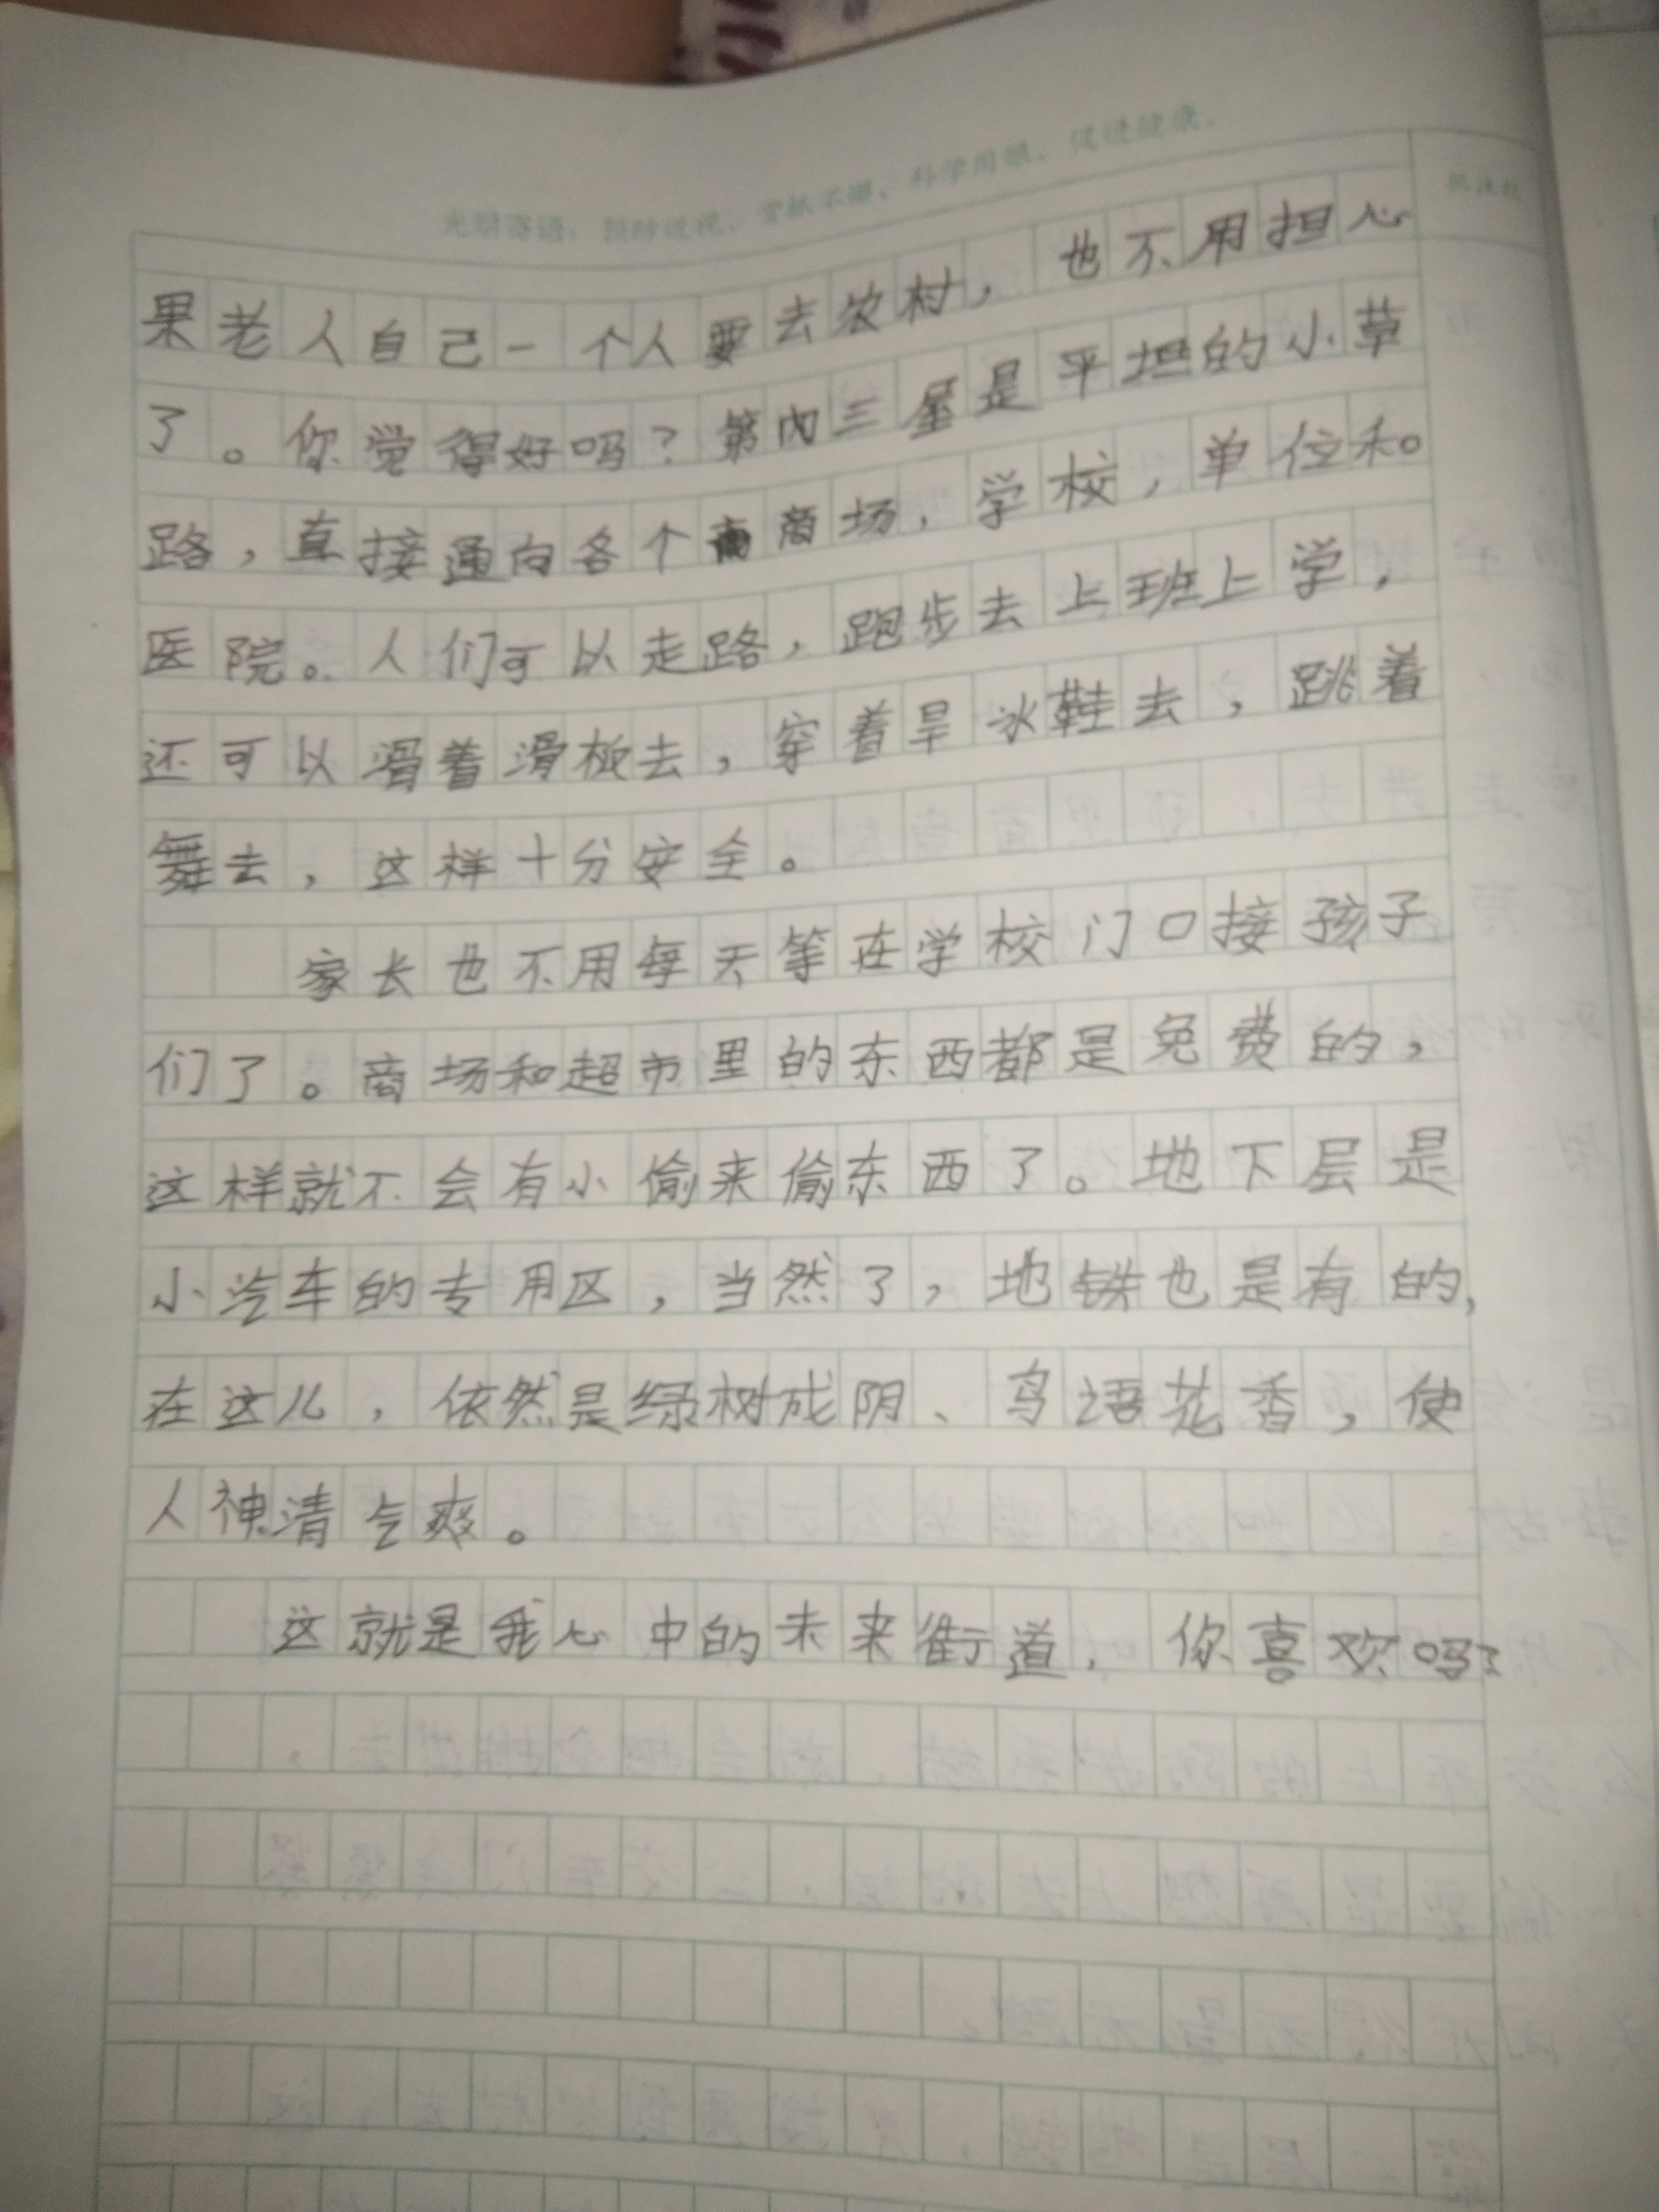 光明寄语：预防近视，常抓不懈，科学用眼，促进健康。
果老人自己一个人要去农村，也不用担心
了。你觉得好吗？第内三层是平坦的小草
路，直接通向各个商场，学校，单位和
医院。人们可以走路，跑步去上班上学，
还可以滑着滑板去，穿着旱冰鞋去，跳着
舞去，这样十分安全。
家长也不用每天等在学校门口接孩子
们了。商场和超市里的东西都是免费的，
这样就不会有小偷来偷东西了。地下层是
小汽车的专用区，当然了，地铁也是有的，
在这儿，依然是绿树成阴、鸟语花香，使
人神清气爽。
这就是我心中的未来街道，你喜欢吗？